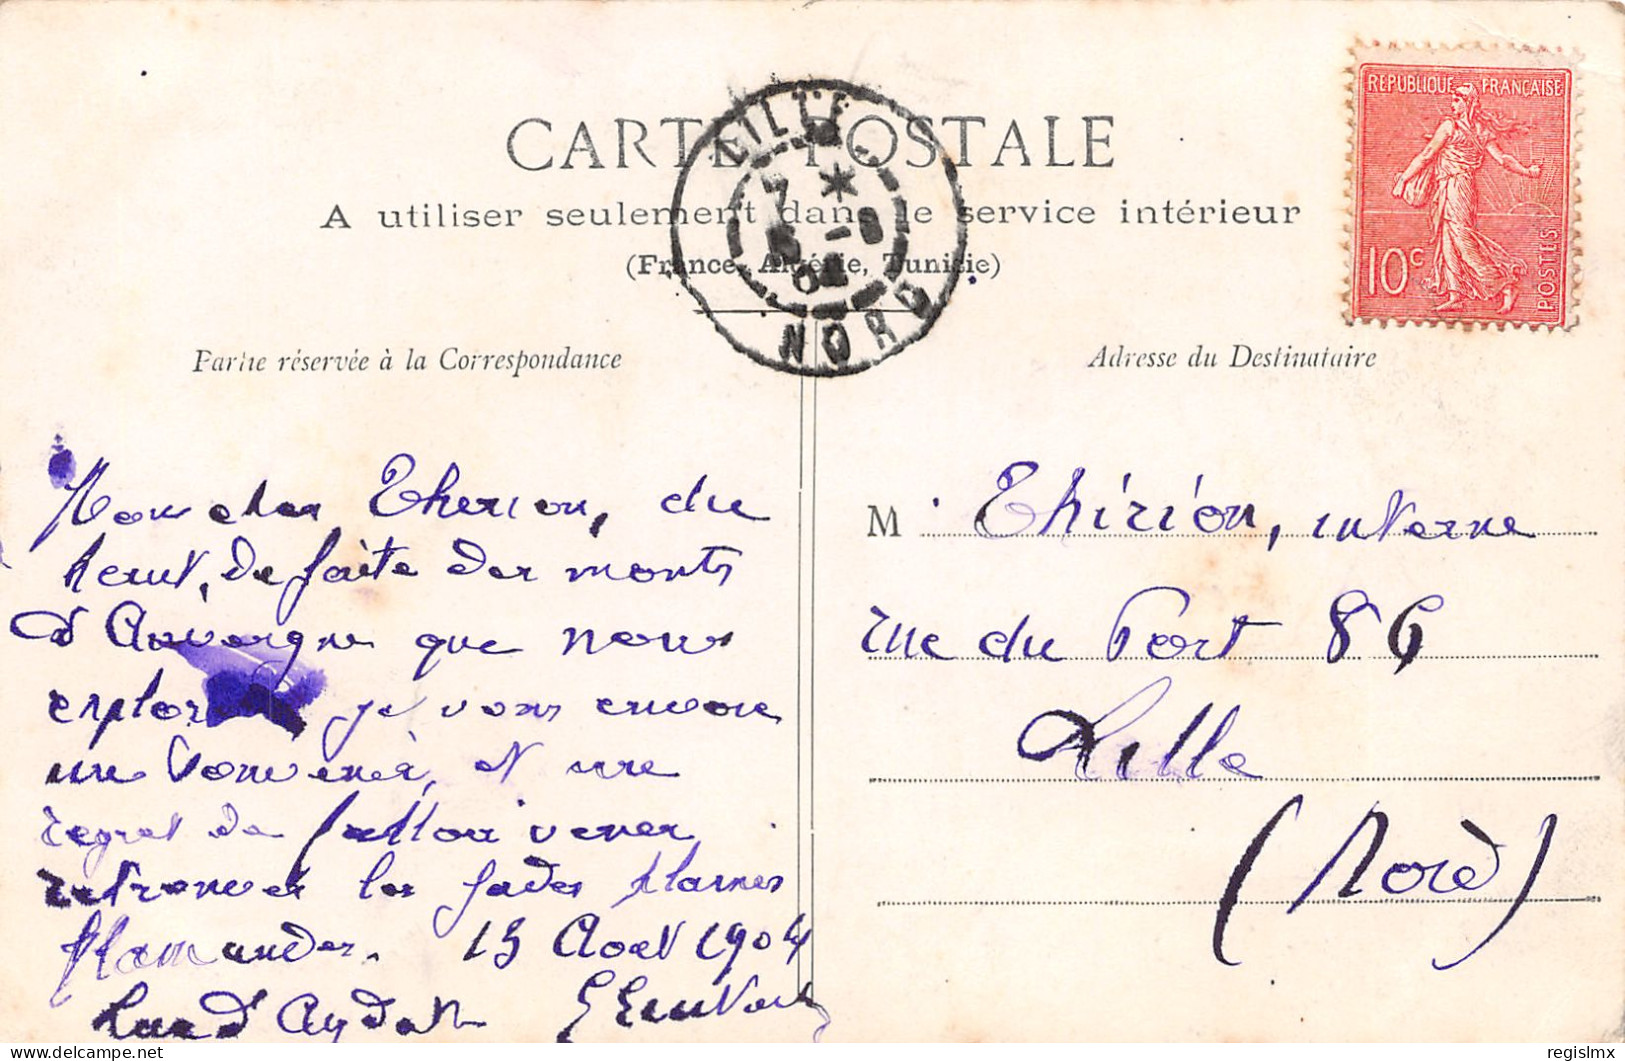 CARTE POSTALE
A utiliser seulement dans le service intérieur
(France, Algérie, Tunisie)
LILLE
7 *
-8
04
NORD
REPUBLIQUE FRANÇAISE
10c
POSTES
Partie réservée à la Correspondance
Adresse du Destinataire
Mon cher Therion, du
haut, de faite des monts
d'Auvergne que nous
explor je vous envoie
un souvenir, et une
regret de falloir venir
retrouver les fades plaines
flamandes. 13 Août 1904
Lac d'Aydat
M Thirion, interne
rue du Port 86
Lille
(Nord)
© delcampe.net
regislmx